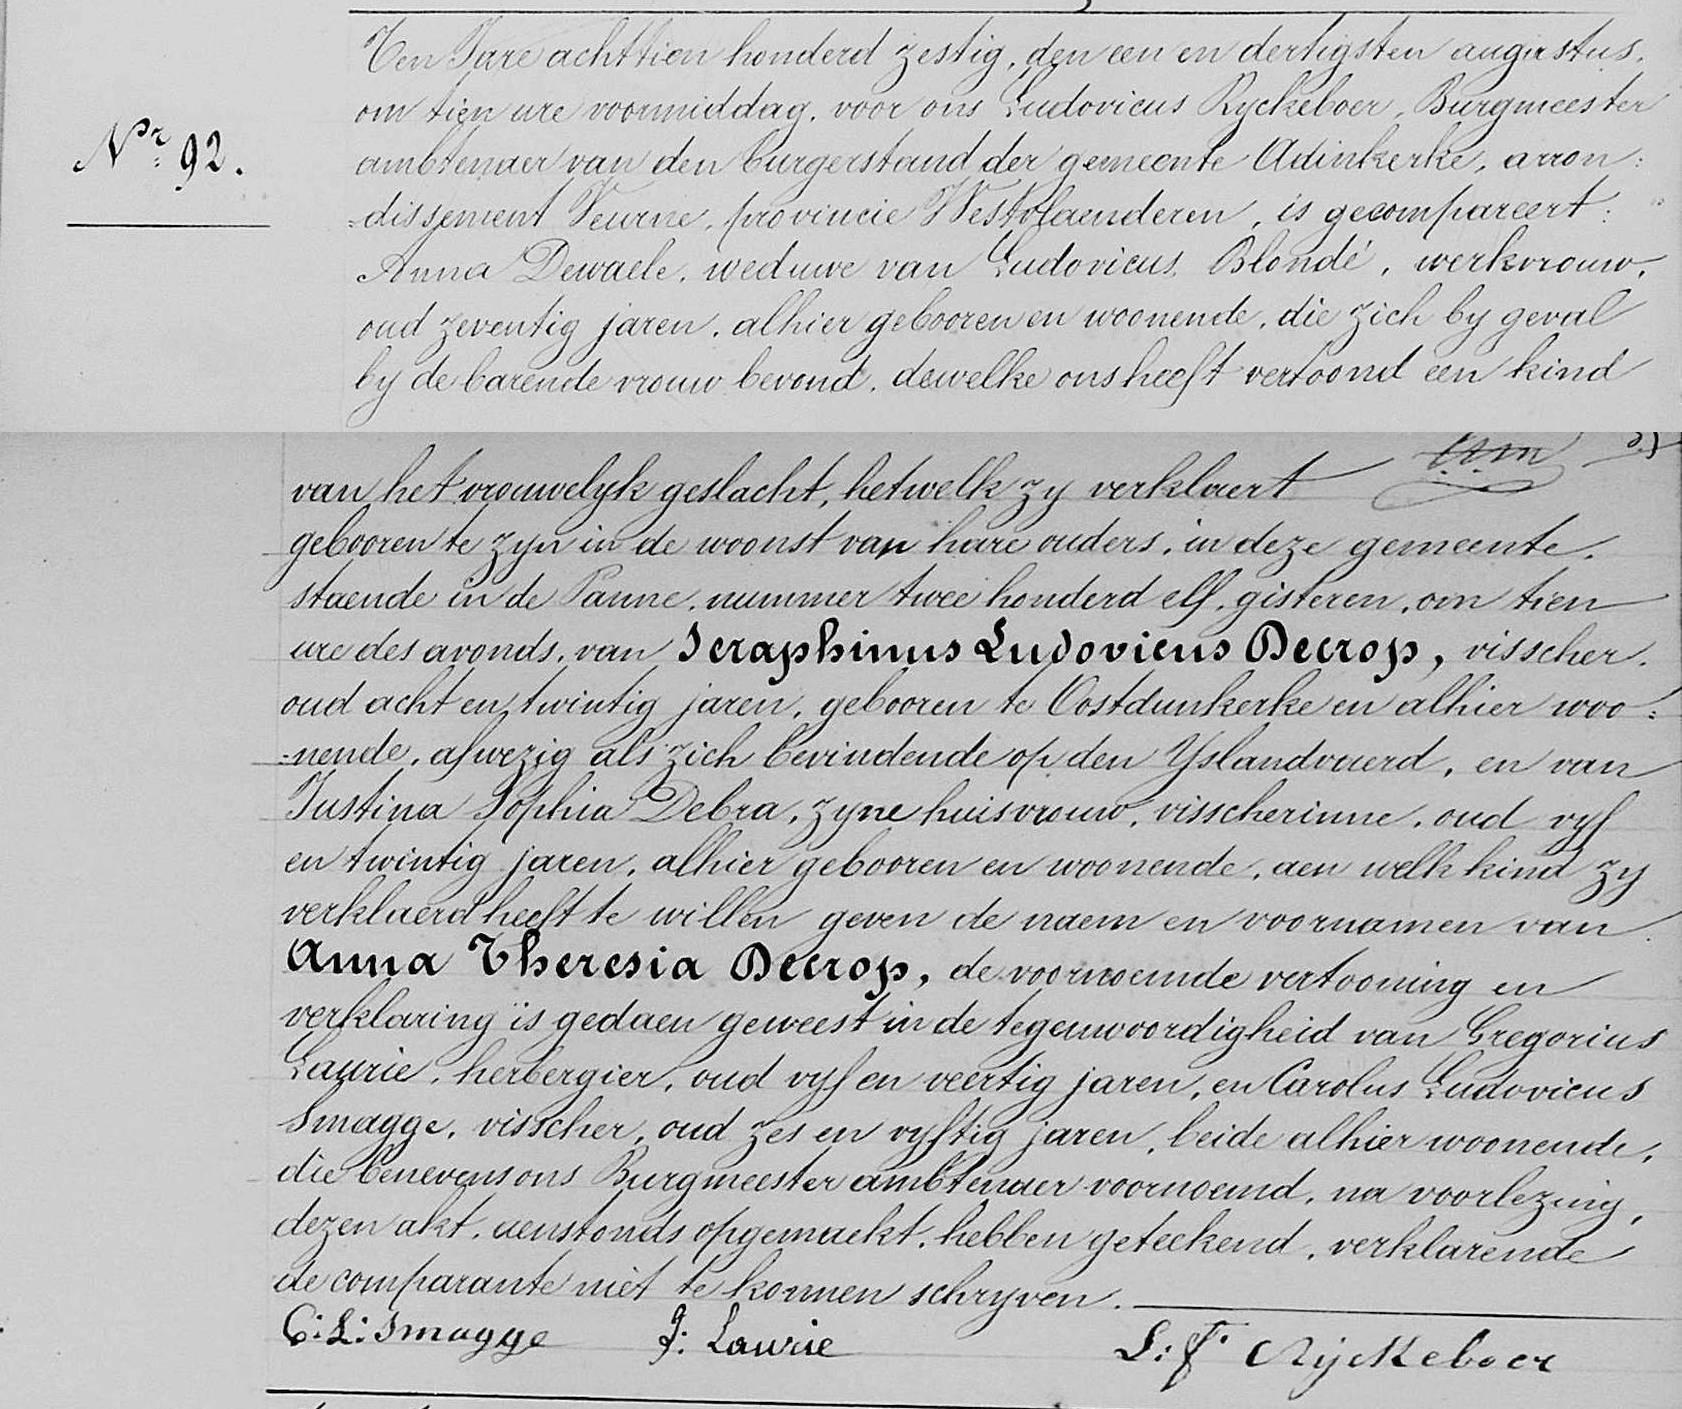 Ten Jare achttien honderd zestig, den een en dertigsten augustus,
om tien ure voormiddag, voor ons Ludovicus Ryckeboer, Burgmeester
Nr: 92.
ambtenaer van den burgerstand der gemeente Adinkerke, arron:
-dissement Veurne, provincie Westvlaenderen, is gecompareert:
Anna Dewaele, weduwe van Ludovicus Blondé, werkvrouw,
oud zeventig jaren, alhier gebooren en woonende, die zich by geval
by de barende vrouw bevond, dewelke ons heeft vertoond een kind
van het vrouwelyk geslacht, hetwelk zy verklaert
gebooren te zyn in de woonst van hare ouders, in deze gemeente,
staende in de Panne, nummer twee honderd elf, gisteren, om tien
ure des avonds, van Seraphinus Ludovicus Decrop, visscher,
oud acht en twintig jaren, gebooren te Oostdunkerke en alhier woo:
-nende, afwezig als zich bevindende op den Yslandvaerd, en van
Justina Sophia Debra, zyne huisvrouw, visscherinne, oud vyf
en twintig jaren, alhier gebooren en woonende, aen welk kind zy
verklaerd heeft te willen geven de naem en voornamen van
Anna Theresia Decrop, de voornoemde vertooning en
verklaring is gedaen geweest in de tegenwoordigheid van Gregorius
Laurie, herbergier, oud vyf en veertig jaren, en Carolus Ludovicus
Smagge, visscher, oud zes en vyftig jaren, beide alhier woonende,
die benevens ons Burgmeester ambtenaer voornoemd, na voorlezing,
dezen akt, aenstonds opgemaekt, hebben geteekend, verklarende
de comparante niet te konnen schryven.
C: L: Smagge G: Laurie L: F. Ryckeboer